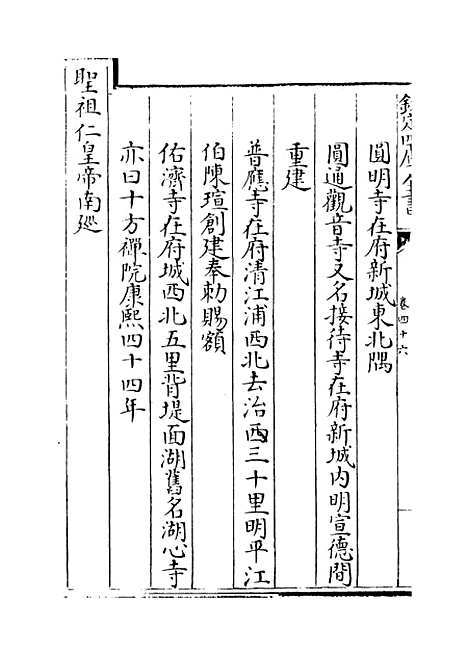 欽定四庫全書
卷四十六
圓明寺在府新城東北隅
圓通觀音寺又名接待寺在府新城内明宣德間
重建
普應寺在府清江浦西北去治西三十里明平江
伯陳瑄創建奉勅賜額
佑濟寺在府城西北五里背堤面湖舊名湖心寺
亦曰十方禪院康熙四十四年
聖祖仁皇帝南廵